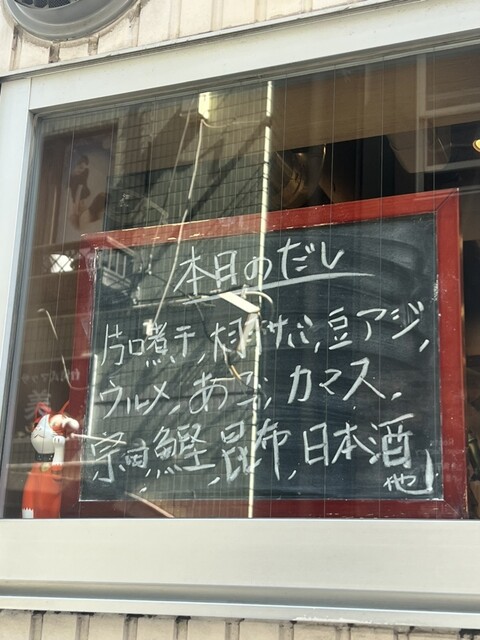 本日のだし
片口煮干,サバ,豆アジ,
ウルメ,あご,カマス,
宗田鰹,昆布,日本酒
他